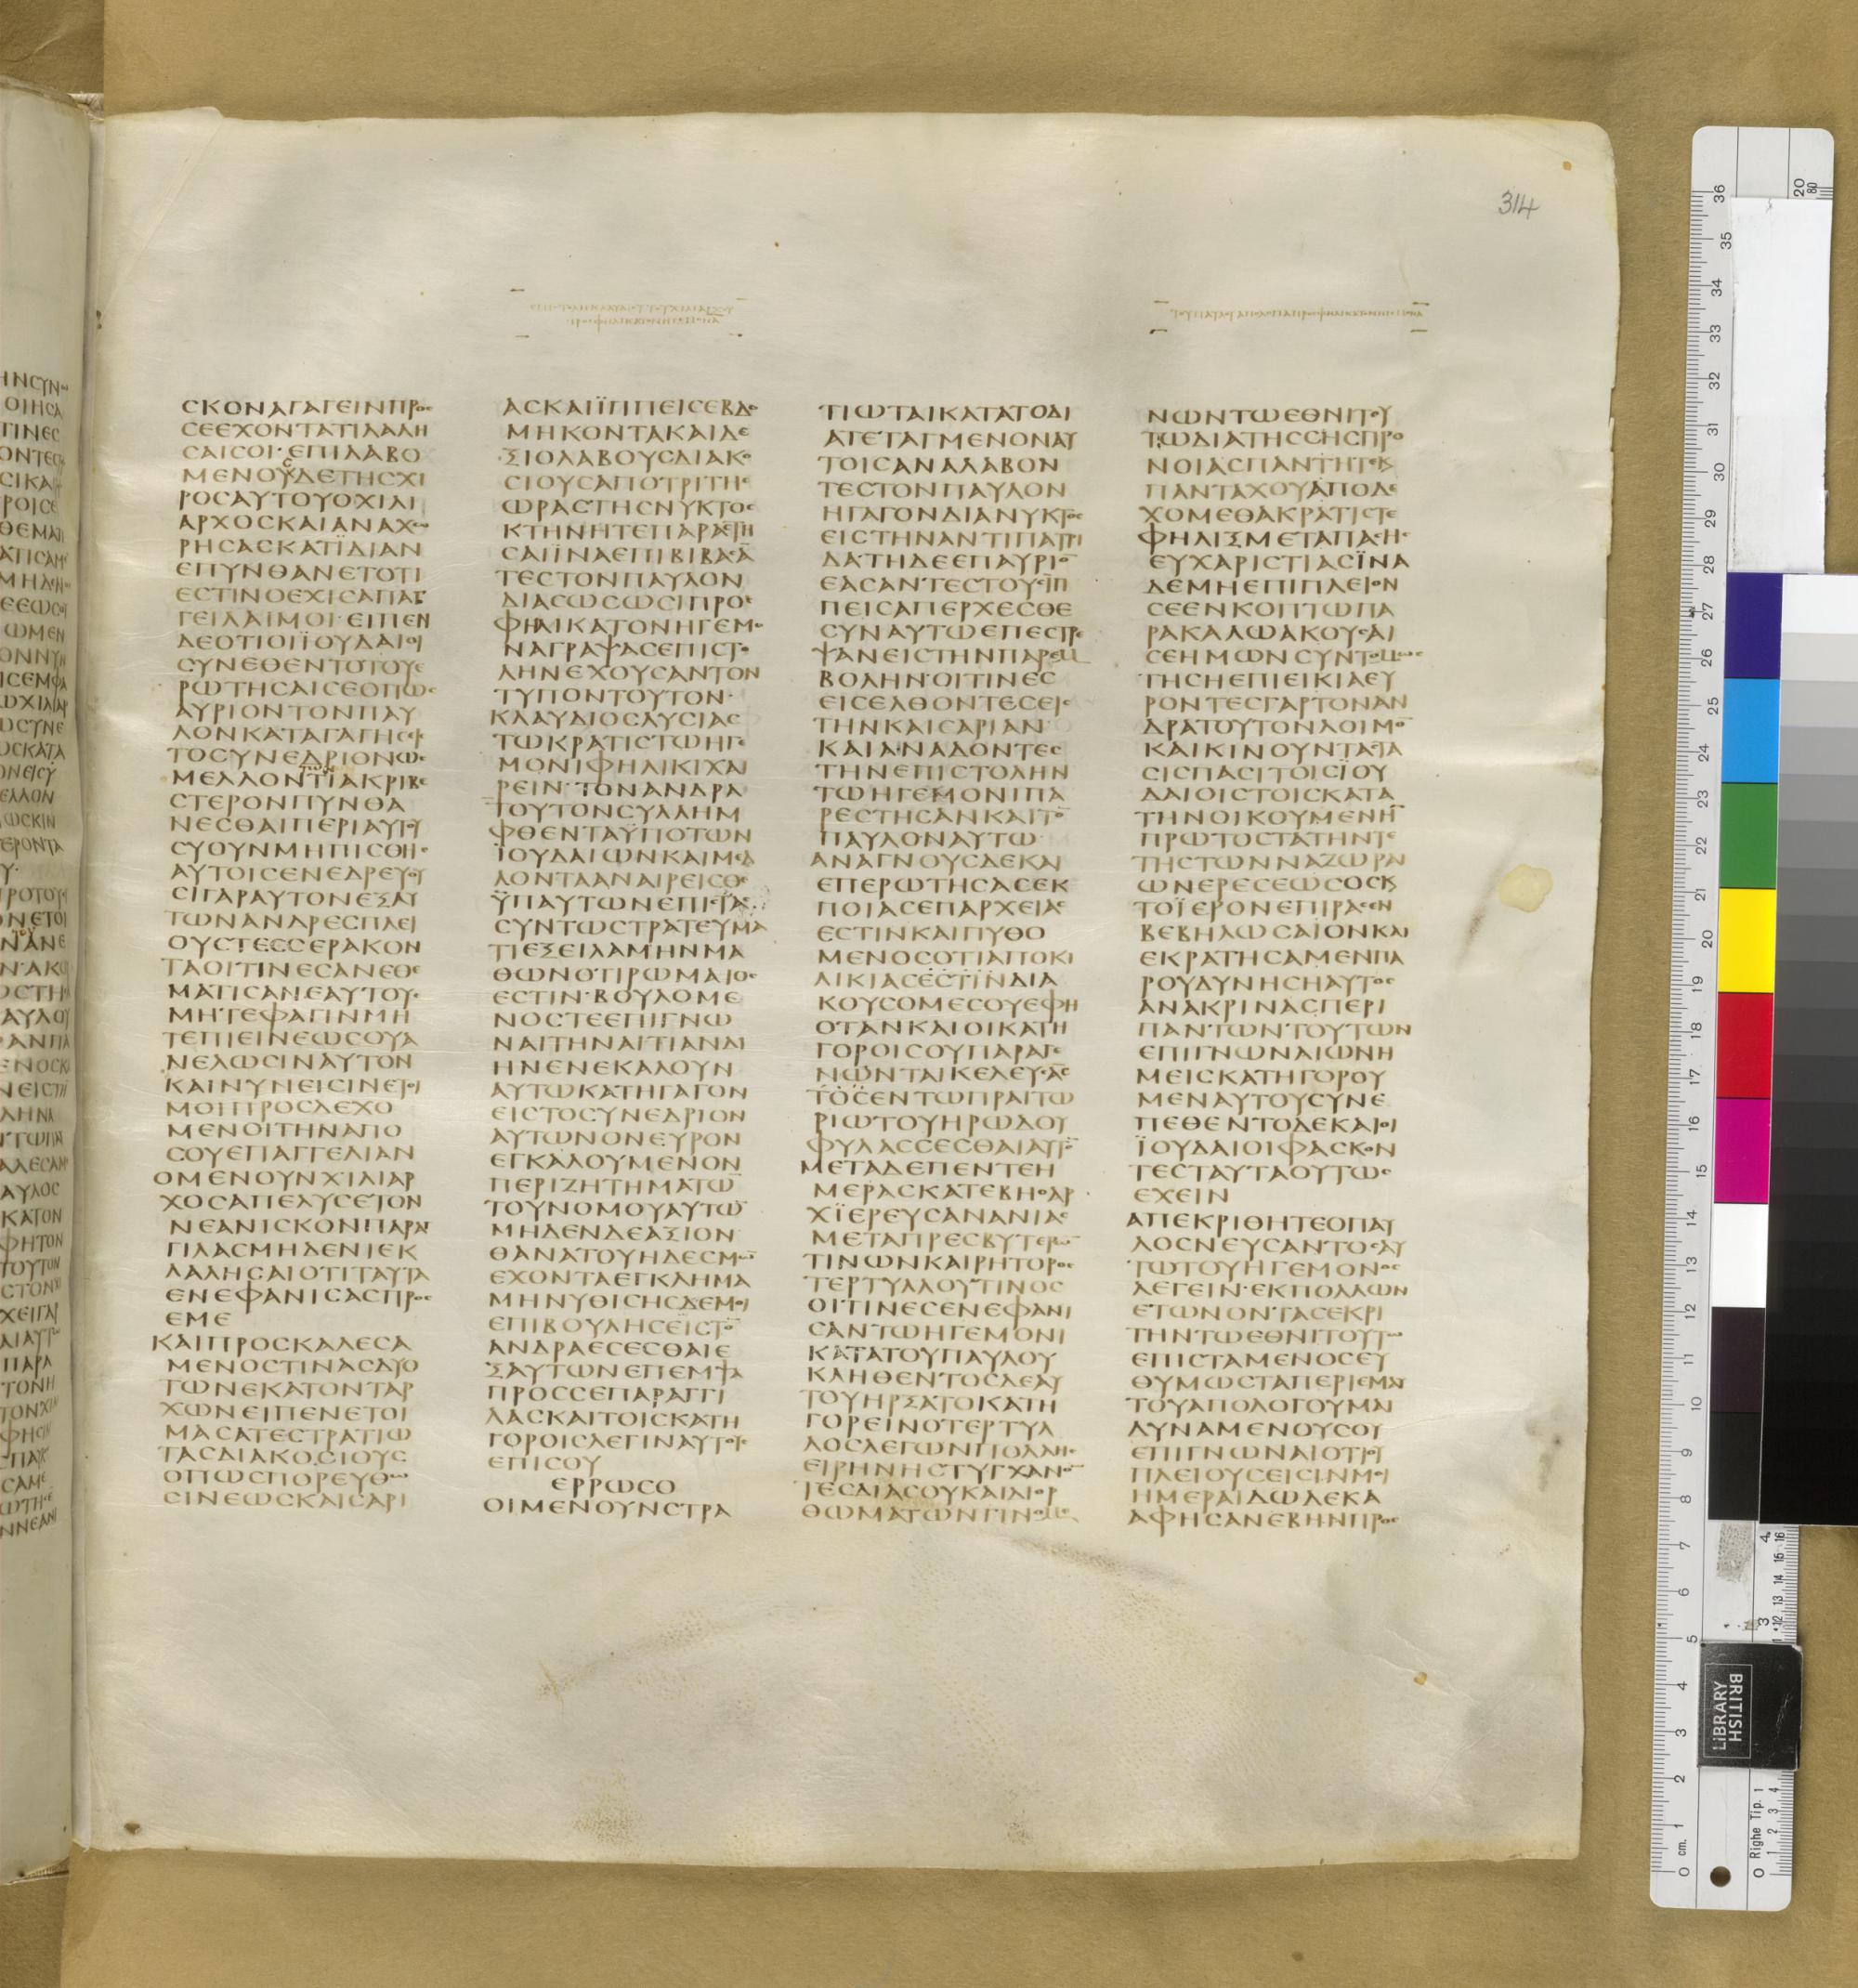 314
ΕΠΙΣΤΟΛΗ ΚΛΑΥΔΙΟΥ ΤΟΥ ΧΙΛΙΑΡΧΟΥ
ΠΡΟΣ ΦΗΛΙΚΑ ΤΟΝ ΗΓΕΜΟΝΑ
ΤΟΥ ΠΑΥΛΟΥ ΑΠΟΛΟΓΙΑ ΠΡΟΣ ΦΗΛΙΚΑ ΤΟΝ ΗΓΕΜΟΝΑ
ϹΚΟΝΑΓΑΓΕΙΝΠΡΟϹ
ϹΕΕΧΟΝΤΑΤΙΛΑΛΗ
ϹΑΙϹΟΙ·ΕΠΙΛΑΒΟ
ΜΕΝΟϹΔΕΤΗϹΧΙ
ΡΟϹΑΥΤΟΥΟΧΙΛΙ
ΑΡΧΟϹΚΑΙΑΝΑΧΩ
ΡΗϹΑϹΚΑΤΪΔΙΑΝ
ΕΠΥΝΘΑΝΕΤΟΤΙ
ΕϹΤΙΝΟΕΧΙϹΑΠΑΓ
ΓΕΙΛΑΙΜΟΙ·ΕΙΠΕΝ
ΔΕΟΤΙΟΙΪΟΥΔΑΙΟΙ
ϹΥΝΕΘΕΝΤΟΤΟΥΕ
ΡΩΤΗϹΑΙϹΕΟΠΩϹ
ΑΥΡΙΟΝΤΟΝΠΑΥ
ΛΟΝΚΑΤΑΓΑΓΗϹΕΙϹ
ΤΟϹΥΝΕΔΡΙΟΝΩϹ
ΜΕΛΛΟΝΤΙΑΚΡΙΒΕ
ϹΤΕΡΟΝΠΥΝΘΑ
ΝΕϹΘΑΙΠΕΡΙΑΥΤΟΥ
ϹΥΟΥΝΜΗΠΙϹΘΗϹ
ΑΥΤΟΙϹΕΝΕΔΡΕΥΟΥ
ϹΙΓΑΡΑΥΤΟΝΕΞΑΥ
ΤΩΝΑΝΔΡΕϹΠΛΕΙ
ΟΥϹΤΕϹϹΕΡΑΚΟΝ
ΤΑΟΙΤΙΝΕϹΑΝΕΘΕ
ΜΑΤΙϹΑΝΕΑΥΤΟΥϹ
ΜΗΤΕΦΑΓΙΝΜΗ
ΤΕΠΙΕΙΝΕΩϹΟΥΑ
ΝΕΛΩϹΙΝΑΥΤΟΝ
ΚΑΙΝΥΝΕΙϹΙΝΕΤΟΙ
ΜΟΙΠΡΟϹΔΕΧΟ
ΜΕΝΟΙΤΗΝΑΠΟ
ϹΟΥΕΠΑΓΓΕΛΙΑΝ
ΟΜΕΝΟΥΝΧΙΛΙΑΡ
ΧΟϹΑΠΕΛΥϹΕΤΟΝ
ΝΕΑΝΙϹΚΟΝΠΑΡΑΓ
ΓΙΛΑϹΜΗΔΕΝΙΕΚ
ΛΑΛΗϹΑΙΟΤΙΤΑΥΤΑ
ΕΝΕΦΑΝΙϹΑϹΠΡΟϹ
ΕΜΕ
ΚΑΙΠΡΟϹΚΑΛΕϹΑ
ΜΕΝΟϹΤΙΝΑϹΔΥΟ
ΤΩΝΕΚΑΤΟΝΤΑΡ
ΧΩΝΕΙΠΕΝΕΤΟΙ
ΜΑϹΑΤΕϹΤΡΑΤΙΩ
ΤΑϹΔΙΑΚΟϹΙΟΥϹ
ΟΠΩϹΠΟΡΕΥΘΩ
ϹΙΝΕΩϹΚΑΙϹΑΡΙ
ΑϹΚΑΙΪΠΠΕΙϹΕΒΔΟ
ΜΗΚΟΝΤΑΚΑΙΔΕ
ΞΙΟΛΑΒΟΥϹΔΙΑΚΟ
ϹΙΟΥϹΑΠΟΤΡΙΤΗϹ
ΩΡΑϹΤΗϹΝΥΚΤΟϹ
ΚΤΗΝΗΤΕΠΑΡΑϹΤΗ
ϹΑΙΪΝΑΕΠΙΒΙΒΑϹΑ̅
ΤΕϹΤΟΝΠΑΥΛΟΝ
ΔΙΑϹΩϹΩϹΙΠΡΟϹ
ΦΗΛΙΚΑΤΟΝΗΓΕΜΟ
ΝΑΓΡΑΨΑϹΕΠΙϹΤΟ
ΛΗΝΕΧΟΥϹΑΝΤΟΝ
ΤΥΠΟΝΤΟΥΤΟΝ·
ΚΛΑΥΔΙΟϹΛΥϹΙΑϹ
ΤΩΚΡΑΤΙϹΤΩΗΓΕ
ΜΟΝΙΦΗΛΙΚΙΧΑΙ
ΡΕΙΝ·ΤΟΝΑΝΔΡΑ
ΤΟΥΤΟΝϹΥΛΛΗΜ
ΦΘΕΝΤΑΫΠΟΤΩΝ
ΪΟΥΔΑΙΩΝΚΑΙΜΕΛ
ΛΟΝΤΑΑΝΑΙΡΕΙϹΘΕ
ΫΠΑΥΤΩΝΕΠΙϹΤΑϹ
ϹΥΝΤΩϹΤΡΑΤΕΥΜΑ
ΤΙΕΞΕΙΛΑΜΗΝΜΑ
ΘΩΝΟΤΙΡΩΜΑΙΟϹ
ΕϹΤΙΝ·ΒΟΥΛΟΜΕ
ΝΟϹΤΕΕΠΙΓΝΩ
ΝΑΙΤΗΝΑΙΤΙΑΝΔΙ
ΗΝΕΝΕΚΑΛΟΥΝ
ΑΥΤΩΚΑΤΗΓΑΓΟΝ
ΕΙϹΤΟϹΥΝΕΔΡΙΟΝ
ΑΥΤΩΝΟΝΕΥΡΟΝ
ΕΓΚΑΛΟΥΜΕΝΟΝ
ΠΕΡΙΖΗΤΗΜΑΤΩ̅
ΤΟΥΝΟΜΟΥΑΥΤΩ̅
ΜΗΔΕΝΔΕΑΞΙΟΝ
ΘΑΝΑΤΟΥΗΔΕϹΜΩ̅
ΕΧΟΝΤΑΕΓΚΛΗΜΑ
ΜΗΝΥΘΙϹΗϹΔΕΜΟΙ
ΕΠΙΒΟΥΛΗϹΕΙϹΤΟ̅
ΑΝΔΡΑΕϹΕϹΘΑΙΕ
ΞΑΥΤΩΝΕΠΕΜΨΑ
ΠΡΟϹϹΕΠΑΡΑΓΓΙ
ΛΑϹΚΑΙΤΟΙϹΚΑΤΗ
ΓΟΡΟΙϹΛΕΓΙΝΑΥΤΟΥϹ
ΕΠΙϹΟΥ
ΕΡΡΩϹΟ
ΟΙΜΕΝΟΥΝϹΤΡΑ
ΤΙΩΤΑΙΚΑΤΑΤΟΔΙ
ΑΤΕΤΑΓΜΕΝΟΝΑΥ
ΤΟΙϹΑΝΑΛΑΒΟΝ
ΤΕϹΤΟΝΠΑΥΛΟΝ
ΗΓΑΓΟΝΔΙΑΝΥΚΤΟϹ
ΕΙϹΤΗΝΑΝΤΙΠΑΤΡΙ
ΔΑ·ΤΗΔΕΕΠΑΥΡΙΟ̅
ΕΑϹΑΝΤΕϹΤΟΥϹΪΠ
ΠΕΙϹΑΠΕΡΧΕϹΘΕ
ϹΥΝΑΥΤΩΕΠΕϹΤΡΕ
ΨΑΝΕΙϹΤΗΝΠΑΡΕΜ
ΒΟΛΗΝ·ΟΙΤΙΝΕϹ
ΕΙϹΕΛΘΟΝΤΕϹΕΙϹ
ΤΗΝΚΑΙϹΑΡΙΑΝ
ΚΑΙΑΝΑΔΟΝΤΕϹ
ΤΗΝΕΠΙϹΤΟΛΗΝ
ΤΩΗΓΕΜΟΝΙΠΑ
ΡΕϹΤΗϹΑΝΚΑΙΤΟ̅
ΠΑΥΛΟΝΑΥΤΩ
ΑΝΑΓΝΟΥϹΔΕΚΑΙ
ΕΠΕΡΩΤΗϹΑϹΕΚ
ΠΟΙΑϹΕΠΑΡΧΕΙΑϹ
ΕϹΤΙΝΚΑΙΠΥΘΟ
ΜΕΝΟϹΟΤΙΑΠΟΚΙ
ΛΙΚΙΑϹΕϹΤΙΝΔΙΑ
ΚΟΥϹΟΜΕϹΟΥΕΦΗ
ΟΤΑΝΚΑΙΟΙΚΑΤΗ
ΓΟΡΟΙϹΟΥΠΑΡΑΓΕ
ΝΩΝΤΑΙΚΕΛΕΥϹΑϹ
ΤΟϹΕΝΤΩΠΡΑΙΤΩ
ΡΙΩΤΟΥΗΡΩΔΟΥ
ΦΥΛΑϹϹΕϹΘΑΙΑΥΤΟ̅
ΜΕΤΑΔΕΠΕΝΤΕΗ
ΜΕΡΑϹΚΑΤΕΒΗΟΑΡ
ΧΪΕΡΕΥϹΑΝΑΝΙΑϹ
ΜΕΤΑΠΡΕϹΒΥΤΕΡΩ̅
ΤΙΝΩΝΚΑΙΡΗΤΟΡΟϹ
ΤΕΡΤΥΛΛΟΥΤΙΝΟϹ
ΟΙΤΙΝΕϹΕΝΕΦΑΝΙ
ϹΑΝΤΩΗΓΕΜΟΝΙ
ΚΑΤΑΤΟΥΠΑΥΛΟΥ
ΚΛΗΘΕΝΤΟϹΔΕΑΥ
ΤΟΥΗΡΞΑΤΟΚΑΤΗ
ΓΟΡΕΙΝΟΤΕΡΤΥΛ
ΛΟϹΛΕΓΩΝΠΟΛΛΗϹ
ΕΙΡΗΝΗϹΤΥΓΧΑΝΟ̅
ΤΕϹΔΙΑϹΟΥΚΑΙΔΙΟΡ
ΘΩΜΑΤΩΝΓΙΝΟΜΕ
ΝΩΝΤΩΕΘΝΙΤΟΥ
ΤΩΔΙΑΤΗϹϹΗϹΠΡΟ
ΝΟΙΑϹΠΑΝΤΗΤΕΚ
ΠΑΝΤΑΧΟΥΑΠΟΔΕ
ΧΟΜΕΘΑΚΡΑΤΙϹΤΕ
ΦΗΛΙΞΜΕΤΑΠΑϹΗϹ
ΕΥΧΑΡΙϹΤΙΑϹΪΝΑ
ΔΕΜΗΕΠΙΠΛΕΙΟΝ
ϹΕΕΝΚΟΠΤΩΠΑ
ΡΑΚΑΛΩΑΚΟΥϹΑΙ
ϹΕΗΜΩΝϹΥΝΤΟΜΩϹ
ΤΗϹΗΕΠΙΕΙΚΙΑΕΥ
ΡΟΝΤΕϹΓΑΡΤΟΝΑΝ
ΔΡΑΤΟΥΤΟΝΛΟΙΜΟ̅
ΚΑΙΚΙΝΟΥΝΤΑϹΤΑ
ϹΙϹΠΑϹΙΤΟΙϹΪΟΥ
ΔΑΙΟΙϹΤΟΙϹΚΑΤΑ
ΤΗΝΟΙΚΟΥΜΕΝΗ̅
ΠΡΩΤΟϹΤΑΤΗΝΤΕ
ΤΗϹΤΩΝΝΑΖΩΡΑΙ
ΩΝΕΡΕϹΕΩϹΟϹΚ
ΤΟΪΕΡΟΝΕΠΙΡΑϹΕΝ
ΒΕΒΗΛΩϹΑΙΟΝΚΑΙ
ΕΚΡΑΤΗϹΑΜΕΝΠΑ
ΡΟΥΔΥΝΗϹΗΑΥΤΟϹ
ΑΝΑΚΡΙΝΑϹΠΕΡΙ
ΠΑΝΤΩΝΤΟΥΤΩΝ
ΕΠΙΓΝΩΝΑΙΩΝΗ
ΜΕΙϹΚΑΤΗΓΟΡΟΥ
ΜΕΝΑΥΤΟΥϹΥΝΕ
ΠΕΘΕΝΤΟΔΕΚΑΙΟΙ
ΪΟΥΔΑΙΟΙΦΑϹΚΟΝ
ΤΕϹΤΑΥΤΑΟΥΤΩϹ
ΕΧΕΙΝ
ΑΠΕΚΡΙΘΗΤΕΟΠΑΥ
ΛΟϹΝΕΥϹΑΝΤΟϹΑΥ
ΤΩΤΟΥΗΓΕΜΟΝΟϹ
ΛΕΓΕΙΝ·ΕΚΠΟΛΛΩΝ
ΕΤΩΝΟΝΤΑϹΕΚΡΙ
ΤΗΝΤΩΕΘΝΙΤΟΥΤΩ
ΕΠΙϹΤΑΜΕΝΟϹΕΥ
ΘΥΜΩϹΤΑΠΕΡΙΕΜΑΥ
ΤΟΥΑΠΟΛΟΓΟΥΜΑΙ
ΔΥΝΑΜΕΝΟΥϹΟΥ
ΕΠΙΓΝΩΝΑΙΟΤΙΟΥ
ΠΛΕΙΟΥϹΕΙϹΙΝΜΟΙ
ΗΜΕΡΑΙΔΩΔΕΚΑ
ΑΦΗϹΑΝΕΒΗΝΠΡΟϹ
BRITISH
LIBRARY